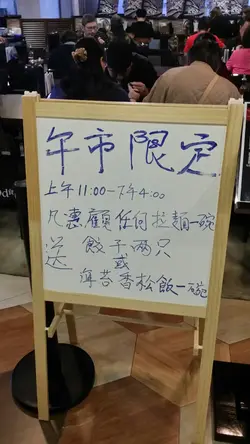 午市限定
上午11:00-下午4:00
凡惠顧任何拉麵一碗
送 餃子兩只
或
海苔香松飯一碗